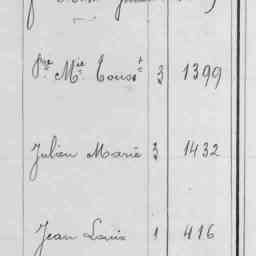 Jne Mie Tousst 3 1399
Julien Marie 3 1432
Jean Louis 1 416